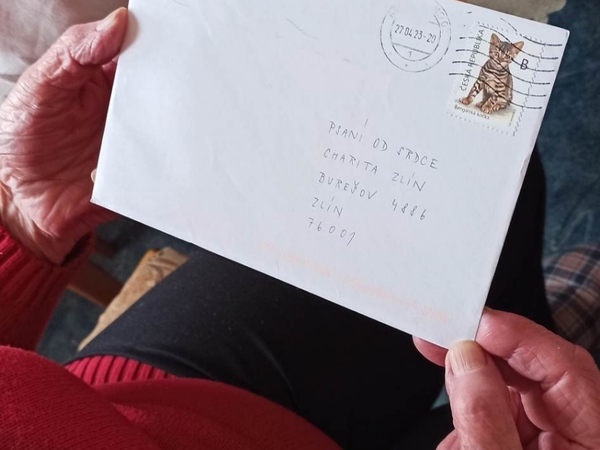 27.04.23-20
ČESKÁ REPUBLIKA
B
Bengálská kočka
PSANÍ OD SRDCE
CHARITA ZLÍN
BUREŠOV 4886
ZLÍN
76001